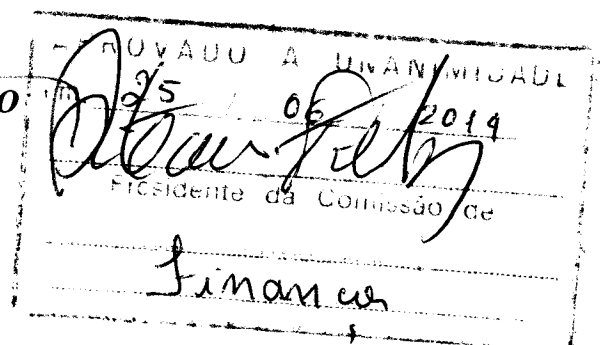 APROVADO A UNANIMIDADE
Em 25 / 06 / 2019
Presidente da Comissão de
Finanças